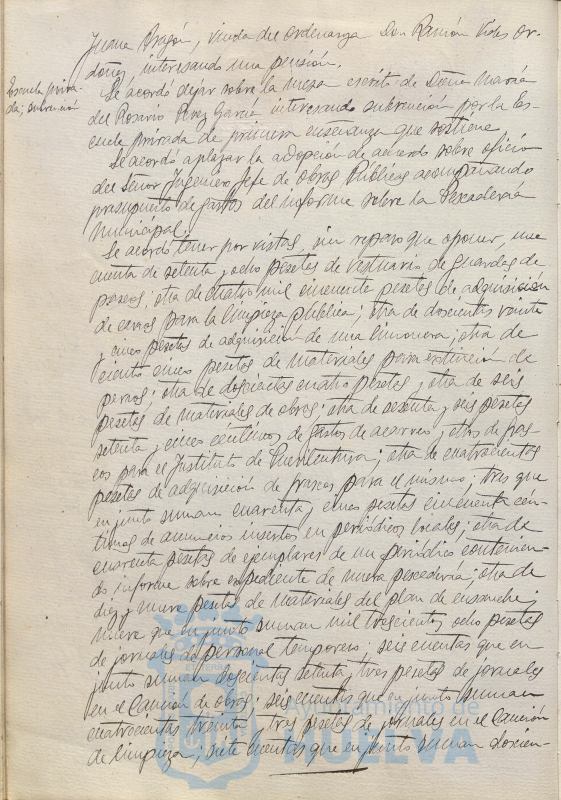 Juana Aragón, viuda del ordenanza Don Ramón Vides Or-
doñez, interesando una pensión.
Escuela priva-
da; subvención
Se acordó dejar sobre la mesa escrito de Doña María
del Rosario Perez García interesando subvención por la Es-
cuela privada de primera enseñanza que sostiene
Se acordó aplazar la adopción de acuerdo sobre oficio
del Señor Ingeniero Jefe de Obras Públicas acompañando
presupuesto de gastos del informe sobre la Pescadería
Municipal.
Se acordó tener por vistas, sin reparo que oponer, una
cuenta de setenta y ocho pesetas de vestuario de guardas de
paseos; otra de cuatro mil cincuenta pesetas de adquisición
de carros para la limpieza pública; otra de doscientas veinte
y cinco pesetas de adquisición de una limonera; otra de
ciento cinco pesetas de materiales para extinción de
perros; otra de doscientas cuatro pesetas, otra de seis
pesetas de materiales de obras; otra de sesenta y seis pesetas
setenta y cinco céntimos de gastos de acarreo; otras de fras-
cos para el Instituto de Puericultura; otra de cuatrocientas
pesetas de adquisición de frascos para el mismo; tres que
en junto suman cuarenta y cinco pesetas cincuenta cén-
timos de anuncios insertos en periódicos locales; otra de
cuarenta pesetas de ejemplares de un periódico contenien-
do informe sobre expediente de nueva pescadería; otra de
diez y nueve pesetas de materiales del plan de ensanche;
nueve que en junto suman mil trescientas ocho pesetas
de jornales de personal temporero; seis cuentas que en
junto suman doscientas setenta y tres pesetas de jornales
en el Camion de obras; seis cuentas que en junto suman
cuatrocientas treinta y tres pesetas de jornales en el Camión
de limpieza; siete cuentas que en junto suman doscien-
Ayuntamiento de
HUELVA